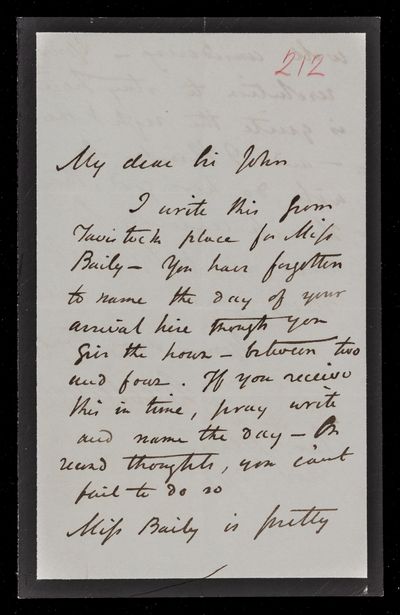 212
My dear Sir John
I write this from
Tavistock place for Miss
Baily - You have forgotten
to name the day of your
arrival here though you
give the hour - between two
and four. If you receive
this in time, pray write
and name the day - On
second thoughts, you can't
fail to do so
Miss Baily is pretty